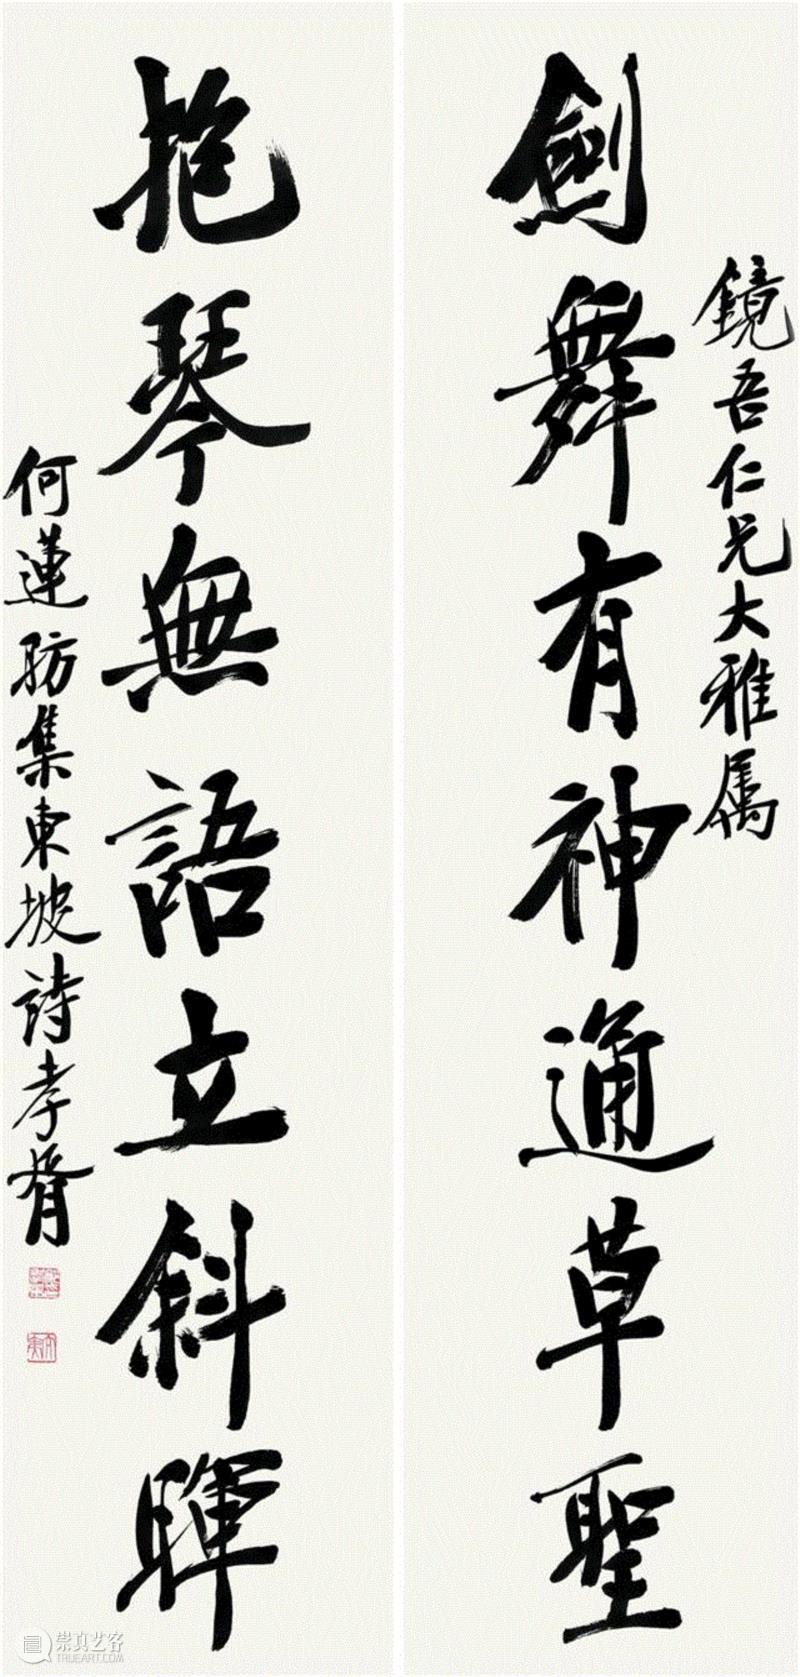 鏡吾仁兄大雅属
劍舞有神通草聖
抱琴無語立斜暉
何蓮舫集東坡詩孝胥
崇真艺客
TRUEART.COM